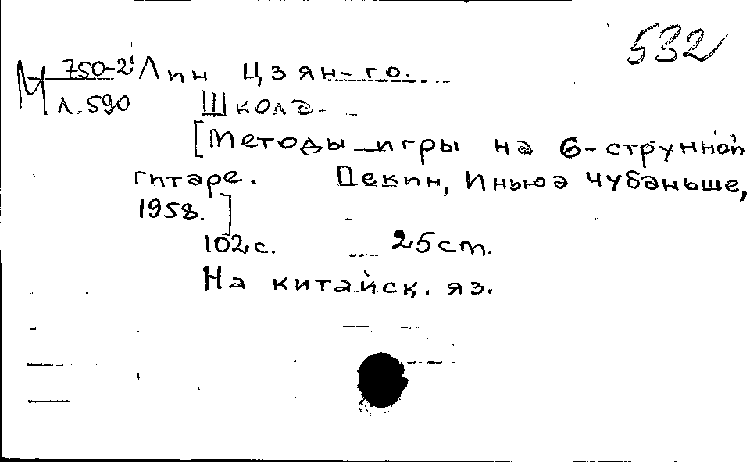 532
М 750-2 Лин Цзян-го.
Л.590 Школа.
[Методы игры на 6-струнной
гитаре. Пекин, Иньюэ чубаньше,
1958.]
102 с. 25 см.
На китайск. яз.